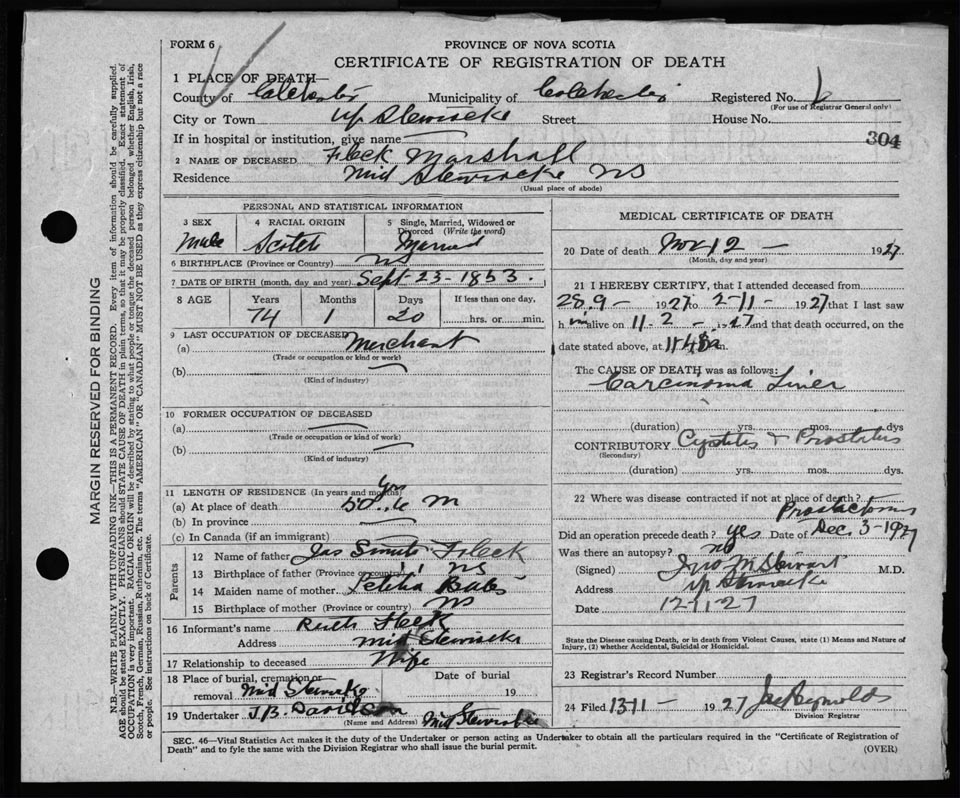 FORM 6
PROVINCE OF NOVA SCOTIA
CERTIFICATE OF REGISTRATION OF DEATH
1 PLACE OF DEATH—
County of Colchester Municipality of Colchester Registered No.
(For use of Registrar General only)
City or Town Up Stewiacke Street House No.
If in hospital or institution, give name
304
2 NAME OF DECEASED Fleck Marshall
Residence Mid Stewiacke NS
(Usual place of abode)
PERSONAL AND STATISTICAL INFORMATION
3 SEX Male
4 RACIAL ORIGIN Scotch
5 Single, Married, Widowed or Divorced (Write the word) Married
6 BIRTHPLACE (Province or Country) NS
7 DATE OF BIRTH (month, day and year) Sept-23-1853.
8 AGE Years Months Days If less than one day,
74 1 20 hrs. or min.
9 LAST OCCUPATION OF DECEASED
(a) Merchant
(Trade or occupation or kind of work)
(b)
(Kind of industry)
10 FORMER OCCUPATION OF DECEASED
(a)
(Trade or occupation or kind of work)
(b)
(Kind of industry)
11 LENGTH OF RESIDENCE (In years and months)
(a) At place of death yrs m
(b) In province
(c) In Canada (if an immigrant)
Parents
12 Name of father Jas Fleck
13 Birthplace of father (Province or country) NS
14 Maiden name of mother
15 Birthplace of mother (Province or country) NS
16 Informant's name Ruth Fleck
Address Mid Stewiacke
17 Relationship to deceased Wife
18 Place of burial, cremation or removal Mid Stewiacke Date of burial 19
19 Undertaker J.B. Davidson Mid Stewiacke
(Name and Address)
MEDICAL CERTIFICATE OF DEATH
20 Date of death Nov 12 — 1927
(Month, day and year)
21 I HEREBY CERTIFY, that I attended deceased from
28.9 — 1927 to 2-11- 1927 that I last saw
h im alive on 11-2 - 1927 and that death occurred, on the
date stated above, at m.
The CAUSE OF DEATH was as follows:
Carcinoma Liver
(duration) yrs. mos. dys
CONTRIBUTORY Cystitis & Prostatitis
(Secondary)
(duration) yrs. mos. dys.
22 Where was disease contracted if not at place of death?
Did an operation precede death? yes Date of Dec. 3-1927
Was there an autopsy? no
(Signed) Jno M Stewart M.D.
Address Up Stewiacke
Date 12-11-27
State the Disease causing Death, or in death from Violent Causes, state (1) Means and Nature of
Injury, (2) whether Accidental, Suicidal or Homicidal.
23 Registrar's Record Number
24 Filed 13-11- 1927 Reynolds
Division Registrar
SEC. 46—Vital Statistics Act makes it the duty of the Undertaker or person acting as Undertaker to obtain all the particulars required in the "Certificate of Registration of
Death" and to fyle the same with the Division Registrar who shall issue the burial permit.
(OVER)
MARGIN RESERVED FOR BINDING
N.B.—WRITE PLAINLY WITH UNFADING INK—THIS IS A PERMANENT RECORD. Every item of information should be carefully supplied.
AGE should be stated EXACTLY. PHYSICIANS should STATE CAUSE OF DEATH in plain terms, so that it may be properly classified. Exact statement of
OCCUPATION is very important. RACIAL ORIGIN will be described by stating to what people or tongue the deceased person belonged whether English, Irish,
Scotch, French, German, Russian, Ruthenian, etc. The terms "AMERICAN" OR "CANADIAN" MUST NOT BE USED as they express citizenship but not a race
or people. See instructions on back of Certificate.